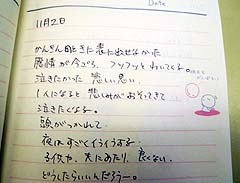 Date
11月2日
かんせん日ときに表に出せなかった
感情が今ごろ、フツフツとわいてくる。
泣きたかった 悲しい思い
1人になると 悲しみがおそってきて
泣きたくなる。
頭がつかれて
夜は、すごくイライラする
子供や、夫にあたり、良くない。
どうしたらいいんだろうー。